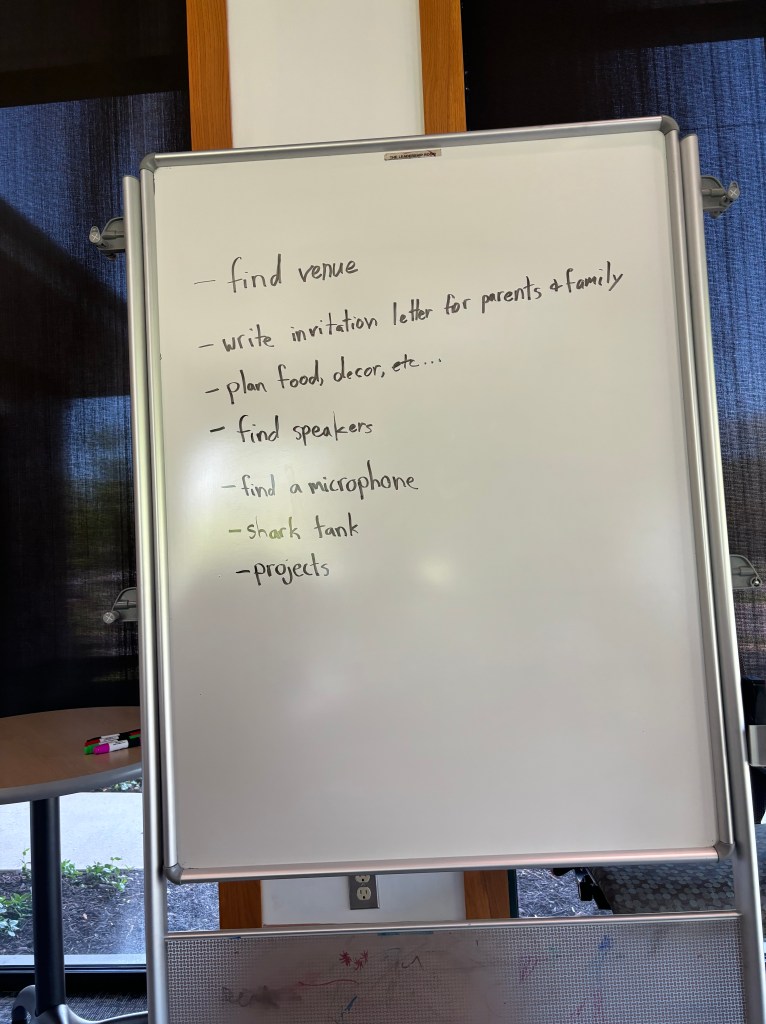 - find venue
- write invitation letter for parents & family
- plan food, decor, etc...
- find speakers
- find a microphone
- shark tank
- projects